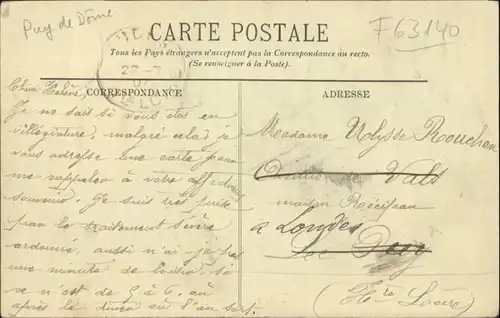 Puy de Dôme
F63140
CARTE POSTALE
Tous les Pays étrangers n'acceptent pas la Correspondance au recto.
(Se renseigner à la Poste).
CORRESPONDANCE
ADRESSE
Chère Hélène
Je ne sais si vous êtes en
villégiature, malgré cela je
vous adresse une carte pour
me rappeler à votre affectueux
souvenir. Je suis très prise
par le traitement sévère
ordonné, aussi n'ai-je pas
une minute de loisir, si
ce n'est de 5 à 6, ou
après le dîner où l'on sort.
Madame Ulysse Rouchon
de Vals
maison
à Loudes
Le Puy
(Hte Loire)